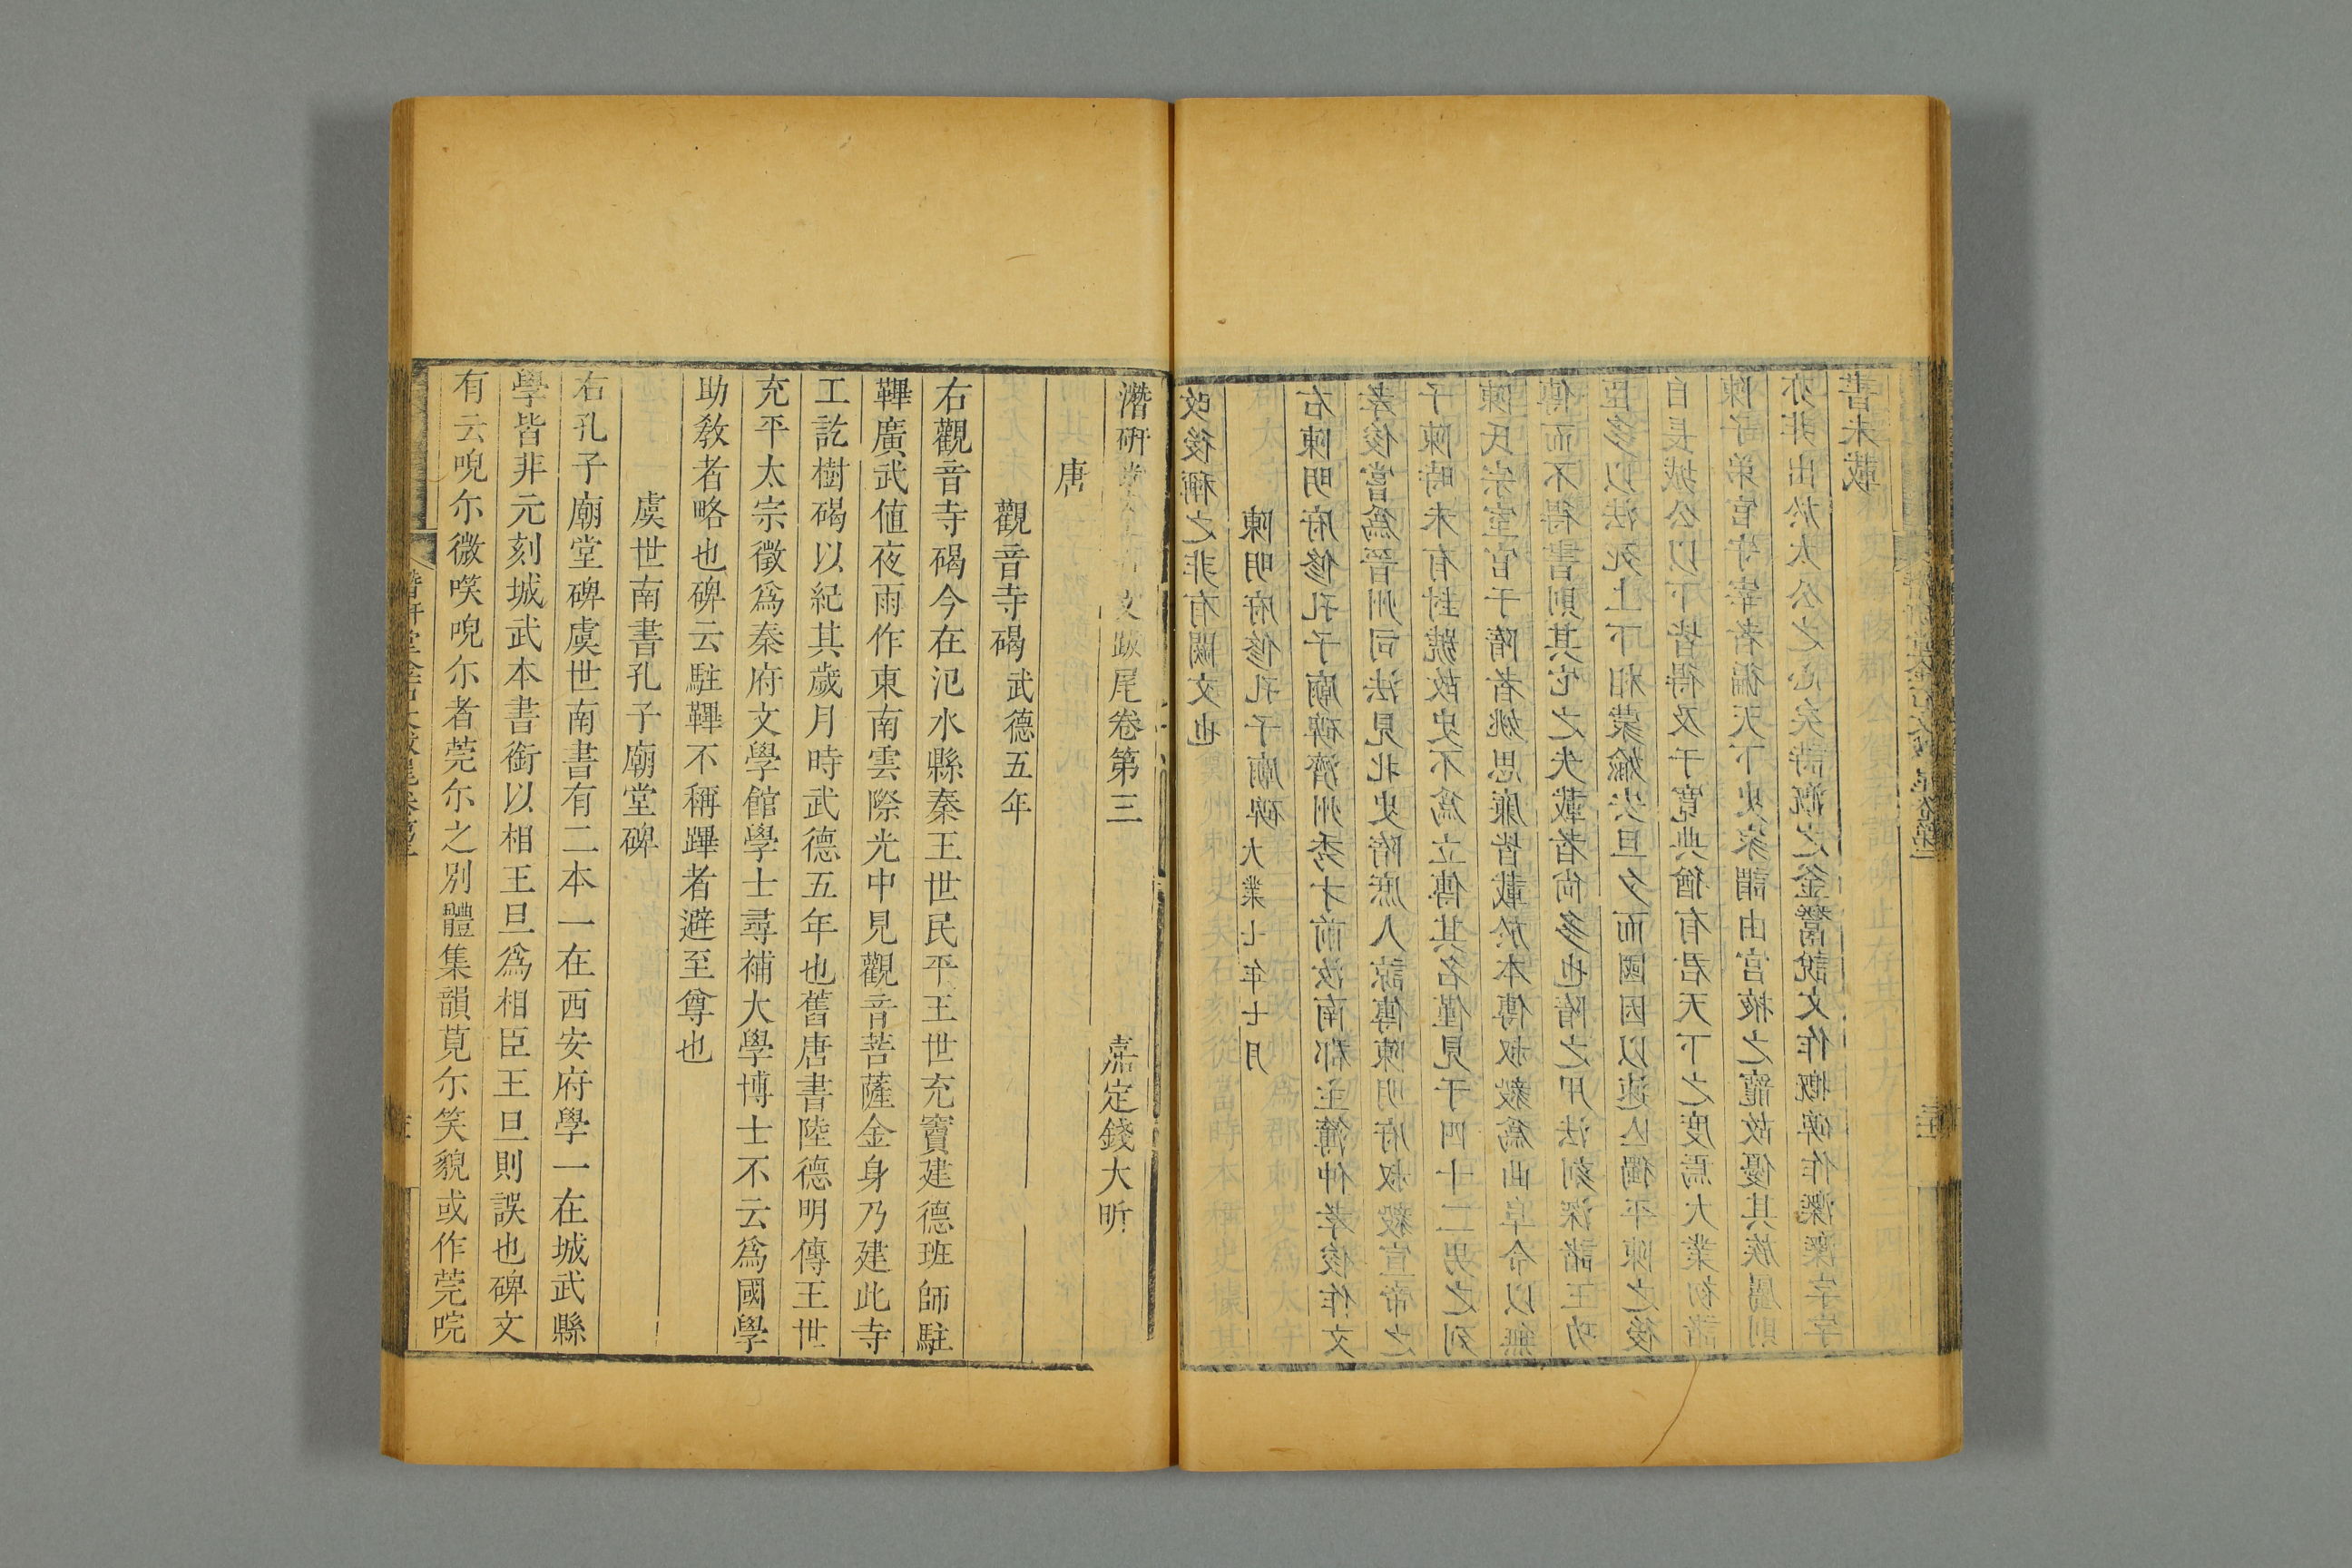 改後稱之非有闕文也
陳明府修孔子廟碑大業七年七月
右陳明府修孔子廟碑濟州秀才前汝南郡主簿仲孝俊作文
孝俊嘗爲晉州司法見北史隋庶人諒傳陳明府叔毅宣帝之
子陳時未有封號故史不爲立傳其名僅見于四十二男之列
陳氏宗室官于隋者姚思廉皆載於本傳叔毅爲曲阜令以無
傳而不得書則其它之失載者尚多也隋之用法刻深諸王功
臣多以法死上下相蒙媮安旦夕而國因以速亡獨平陳之後
自長城公以下皆得及于寬典猶有君天下之度焉大業初諸
陳子弟官守宰者徧天下史家謂由宮掖之寵故優其族屬則
亦非由於太公之心矣詩溉之釜鬵說文作摡碑作字字
書未載
潛研堂金石文跋尾卷第三
嘉定錢大昕
唐
觀音寺碣武德五年
右觀音寺碣今在氾水縣秦王世民平王世充竇建德班師駐
鞸廣武値夜雨作東南雲際光中見觀音菩薩金身乃建此寺
工訖樹碣以紀其歲月時武德五年也舊唐書陸德明傳王世
充平太宗徵爲秦府文學館學士尋補大學博士不云爲國學
助敎者略也碑云駐鞸不稱蹕者避至尊也
虞世南書孔子廟堂碑
右孔子廟堂碑虞世南書有二本一在西安府學一在城武縣
學皆非元刻城武本書銜以相王旦爲相臣王旦則誤也碑文
有云哯尓微㗛哯尓者莞尓之別體集韻莧尓笑貌或作莞唍